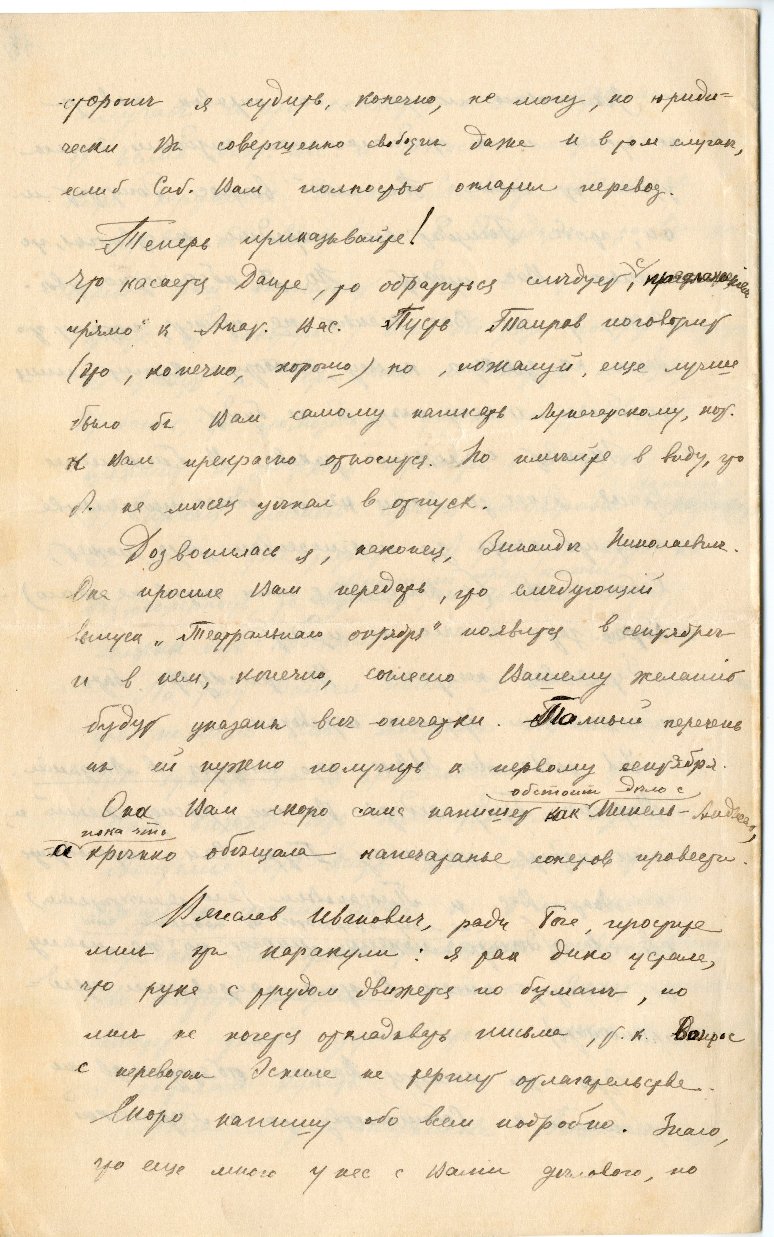 стороне я судить, конечно, не могу, но юриди=
чески Вы совершенно свободны даже и в том случае,
если б Саб. Вам полностью оплатил перевод.
Теперь приказывайте!
Что касается Данте, то обратиться следует, с предложением
прямо к Анат. Вас. Пусть Таиров поговорит
(это, конечно, хорошо) но, пожалуй, еще лучше
было бы Вам самому написать Луначарскому, кот.
к Вам прекрасно относится. Но имейте в виду, что
Л. на месяц уехал в отпуск.
Дозвонилась я, наконец, Зинаиде Николаевне.
Она просила Вам передать, что следующий
выпуск „Театрального октября" появится в сентябре
и в нем, конечно, согласно Вашему желанию
будут указаны все опечатки. Полный перечень
их ей нужно получить к первому сентября.
Она Вам скоро сама напишет как обстоит дело с Микель-Анджело,
а пока что крепко обещала напечатанье сонетов провести.
Вячеслав Иванович, ради Бога, простите
мне эти каракули: я так дико устала,
что рука с трудом движется по бумаге, но
мне не хочется откладывать письма, т. к. вопрос
с переводом Эсхила не терпит отлагательства.
Скоро напишу обо всем подробно. Знаю,
что еще много у нас с Вами делового, но